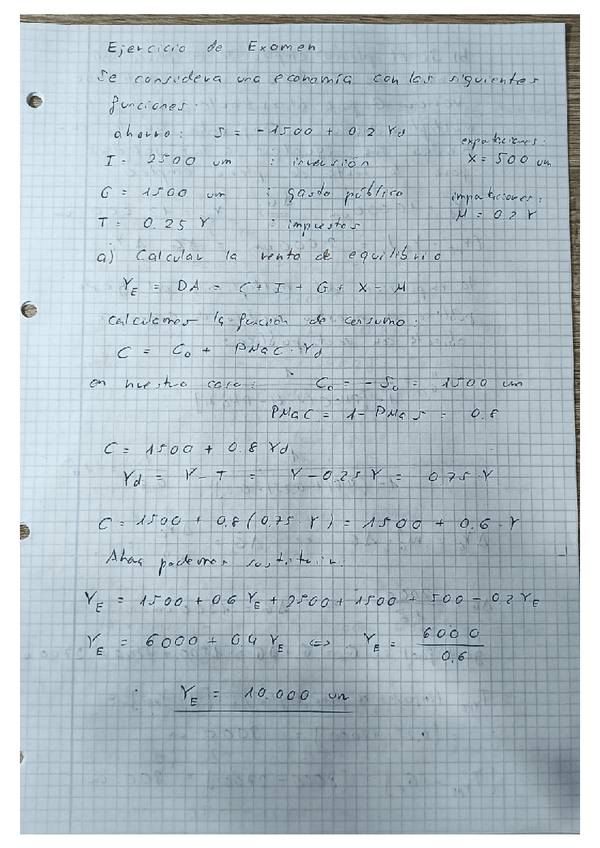 Ejercicio de Examen
Se considera una economía con las siguientes
funciones:
ahorro: S = -1500 + 0.2 Yd
exportaciones:
X = 500 um
I = 2500 um : inversión
G = 1500 um : gasto público
importaciones:
M = 0.2 Y
T = 0.25 Y : impuestos
a) Calcular la renta de equilibrio
YE = DA = C + I + G + X - M
Calculamos la función de consumo:
C = C0 + PMaC · Yd
en nuestro caso: C0 = -S0 = 1500 um
PMaC = 1 - PMaS = 0.8
C = 1500 + 0.8 Yd
Yd = Y - T = Y - 0.25 Y = 0.75 Y
C = 1500 + 0.8 (0.75 · Y) = 1500 + 0.6 · Y
Ahora podemos sustituir:
YE = 1500 + 0.6 YE + 2500 + 1500 + 500 - 0.2 YE
YE = 6000 + 0.4 YE <=> YE = 6000 / 0.6
YE = 10.000 um